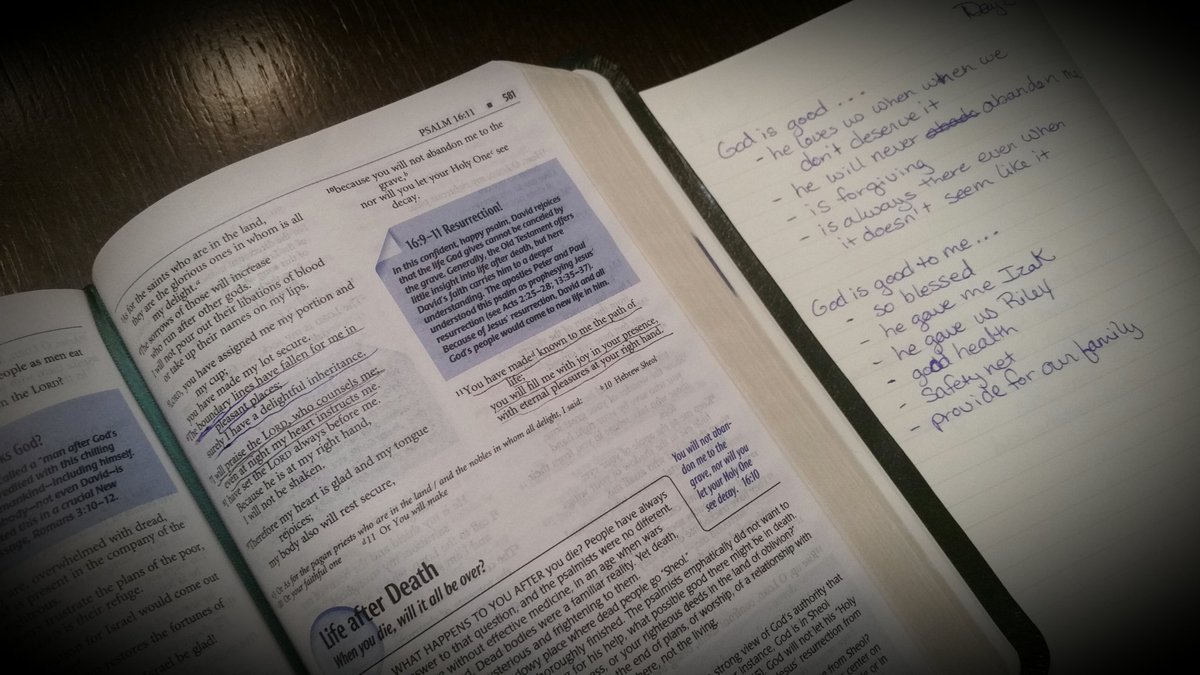 PSALM 16:11 ■ 581
eople as men eat
n the LORD?
KS God?
alled a "man after God's
redited with this chilling
mankind—including himself.
body—not even David—is
ted this in a crucial New
ssage, Romans 3:10–12.
are, overwhelmed with dread,
present in the company of the
frustrate the plans of the poor,
is their refuge.
for Israel would come out
restores the fortunes of
be glad!
³As for the saints who are in the land,
they are the glorious ones in whom is all
my delight.ᵃ
⁴The sorrows of those will increase
who run after other gods.
I will not pour out their libations of blood
or take up their names on my lips.
⁵LORD, you have assigned me my portion and
my cup;
you have made my lot secure.
⁶The boundary lines have fallen for me in
pleasant places;
surely I have a delightful inheritance.
⁷I will praise the LORD, who counsels me;
even at night my heart instructs me.
⁸I have set the LORD always before me.
Because he is at my right hand,
I will not be shaken.
⁹Therefore my heart is glad and my tongue
rejoices;
my body also will rest secure,
¹⁰because you will not abandon me to the
grave,ᵇ
nor will you let your Holy Oneᶜ see
decay.
16:9–11 Resurrection!
In this confident, happy psalm, David rejoices
that the life God gives cannot be canceled by
the grave. Generally, the Old Testament offers
little insight into life after death, but here
David's faith carries him to a deeper
understanding. The apostles Peter and Paul
understood this psalm as prophesying Jesus'
resurrection (see Acts 2:25–28; 13:35–37).
Because of Jesus' resurrection, David and all
God's people would come to new life in him.
¹¹You have madeᵈ known to me the path of
life;
you will fill me with joy in your presence,
with eternal pleasures at your right hand.
a3 Or As for the pagan priests who are in the land / and the nobles in whom all delight, I said:
b10 Hebrew Sheol
Or your faithful one
d11 Or You will make
You will not aban-
don me to the
grave, nor will you
let your Holy One
see decay. 16:10
Life after Death
When you die, will it all be over?
WHAT HAPPENS TO YOU AFTER you die? People have always
answer to that question, and the psalmists were no different.
without effective medicine, in an age when wars
Dead bodies were a familiar reality. Yet death
mysterious and frightening to them.
dowy place where dead people go "Sheol."
thoroughly finished. The psalmists emphatically did not want to
for his help, what possible good there might be in death.
ess, or your righteous deeds in the land of oblivion?"
the end of plans, of worship, of a relationship with
here, not the living.
strong view of God's authority that
instance, God is in Sheol
God will not let his "Holy
Jesus' resurrection from
from Sheol?
center on
or in
God is good...
- he loves us when when we
don't deserve it
- he will never abandon me
- is forgiving
- is always there even when
it doesn't seem like it
God is good to me...
- so blessed
- he gave me Izak
- he gave us Riley
- good health
- safety net
- provide for our family